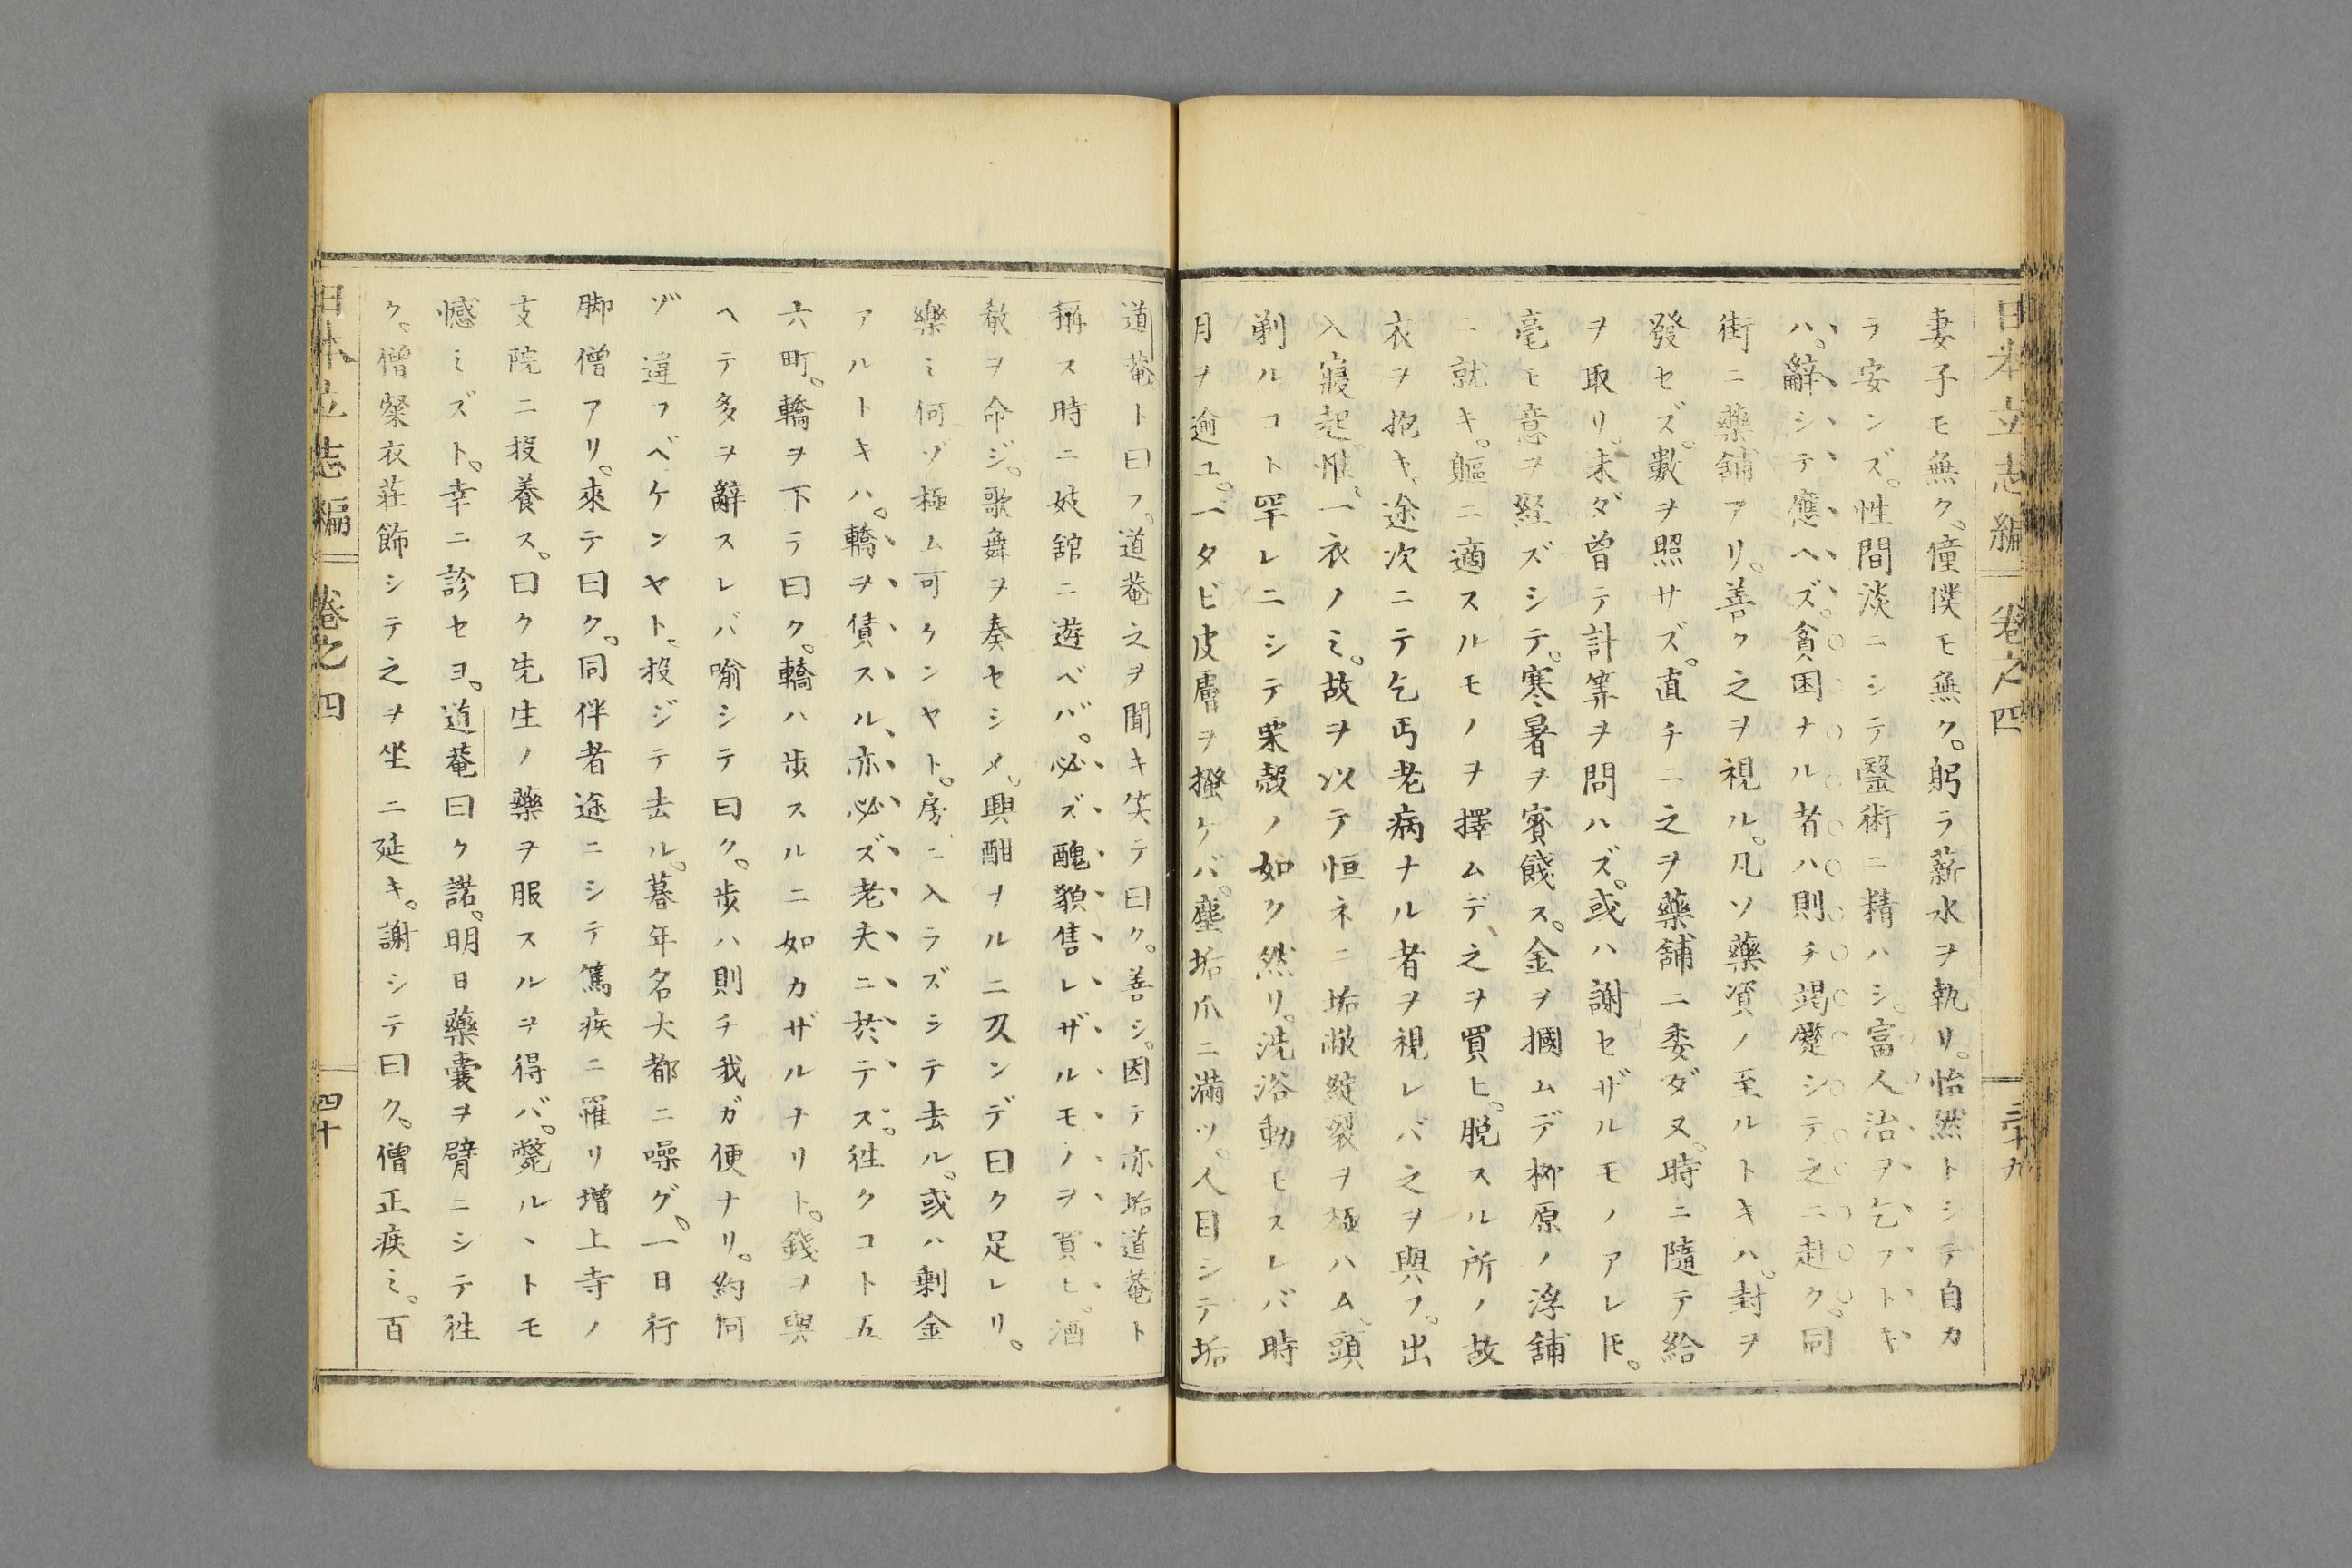 日本立志編 卷之四 三十九
妻子モ無ク、僮僕モ無ク。躬ラ薪水ヲ執リ。怡然トシテ自カ
ラ安ンズ。性間淡ニシテ醫術ニ精ハシ。富人治ヲ乞フトキ
ハ。辭シテ應ヘズ。貧困ナル者ハ則チ竭蹷シテ之ニ赴ク。同
街ニ藥舖アリ。善ク之ヲ視ル。凡ソ藥資ノ至ルトキハ。封ヲ
發セズ。數ヲ照サズ。直チニ之ヲ藥舖ニ委ダヌ。時ニ隨テ給
ヲ取リ。未ダ曾テ計筭ヲ問ハズ。或ハ謝セザルモノアレ𪜈。
毫モ意ヲ経ズシテ。寒暑ヲ賓餞ス。金ヲ摑ムデ柳原ノ浮舖
ニ就キ。軀ニ適スルモノヲ擇ムデ、之ヲ買ヒ。脱スル所ノ故
衣ヲ抱キ。途次ニテ乞丐老病ナル者ヲ視レバ之ヲ與フ。出
入寢起。惟一衣ノミ。故ヲ以テ恒ネニ垢敝綻裂ヲ極ハム。頭
剃ルコト罕レニシテ栗殼ノ如ク然リ。洗浴動モスレバ時
月ヲ逾ユ。一タビ皮膚ヲ搔ケバ。塵垢爪ニ滿ツ。人目シテ垢
道菴ト曰フ。道菴之ヲ聞キ笑テ曰ク。善シ。因テ亦垢道菴ト
稱ス時ニ妓舘ニ遊ベバ。必ズ醜貌售レザルモノヲ買ヒ。酒
殽ヲ命ジ。歌舞ヲ奏セシメ。興酣ナルニ及ンデ曰ク足レリ。
樂ミ何ゾ極ム可ケンヤト。房ニ入ラズシテ去ル。或ハ剩金
アルトキハ。轎ヲ債スル、亦必ズ老夫ニ於テス。徃クコト五
六町。轎ヲ下テ曰ク。轎ハ歩スルニ如カザルナリト。錢ヲ與
ヘテ多ヲ辭スレバ喻シテ曰ク。歩ハ則チ我ガ便ナリ。約何
ゾ違フベケンヤト。投ジテ去ル。暮年名大都ニ噪グ。一日行
脚僧アリ。來テ曰ク。同伴者途ニシテ篤疾ニ罹リ增上寺ノ
支院ニ投養ス。曰ク先生ノ藥ヲ服スルヲ得バ。斃ルヽトモ
憾ミズト。幸ニ診セヨ。道菴曰ク諾。明日藥囊ヲ臂ニシテ徃
ク。僧粲衣莊飾シテ之ヲ坐ニ延キ。謝シテ曰ク。僧正疾ミ。百
日本立志編 卷之四 四十